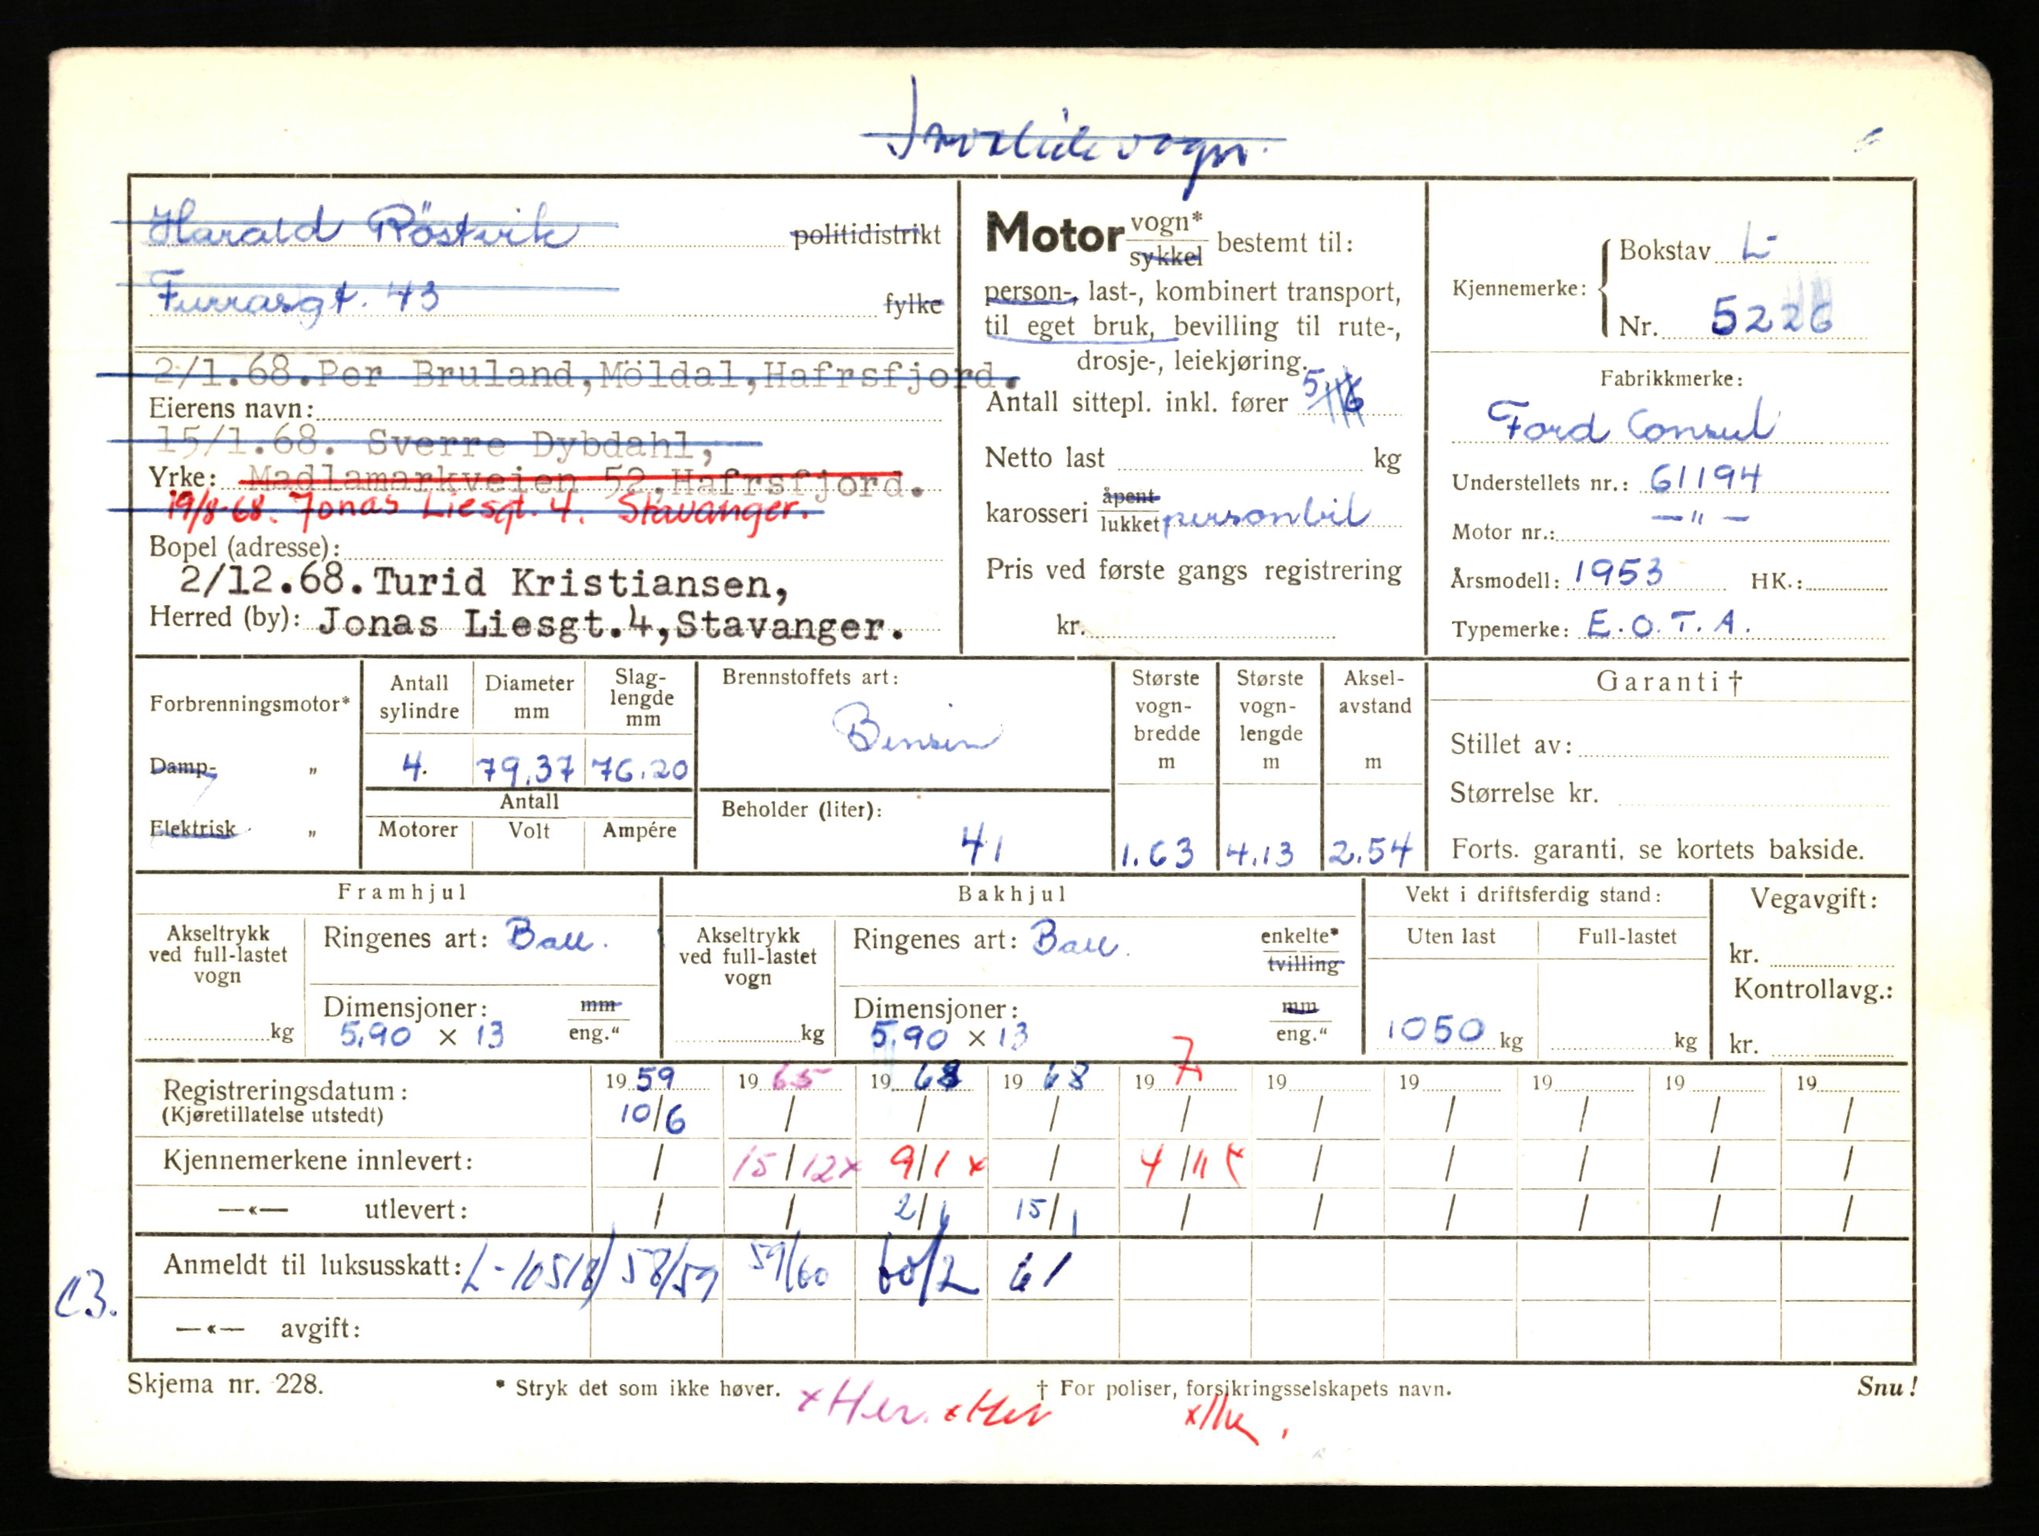 Invalidevogn.
Harald Röstvik politidistrikt
Furrasgt. 43 fylke
2/1.68. Per Bruland, Möldal, Hafrsfjord.
Eierens navn:
15/1.68. Sverre Dybdahl,
Yrke: Madlamarkveien 52, Hafrsfjord.
19/8-68. Jonas Liesgt. 4. Stavanger.
Bopel (adresse):
2/12.68. Turid Kristiansen,
Herred (by): Jonas Liesgt.4, Stavanger.
Motor vogn* sykkel bestemt til:
person-, last-, kombinert transport,
til eget bruk, bevilling til rute-,
drosje-, leiekjøring.
Antall sittepl. inkl. fører 5
Netto last kg
karosseri åpent lukket personbil
Pris ved første gangs registrering
kr.
Kjennemerke: Bokstav L-
Nr. 5226
Fabrikkmerke:
Ford Consul
Understellets nr.: 61194
Motor nr.: — " —
Årsmodell: 1953 HK.:
Typemerke: E.O.T.A.
Forbrenningsmotor*
Damp- „
Elektrisk „
Antall sylindre 4.
Diameter mm 79,37
Slag-lengde mm 76.20
Antall
Motorer Volt Ampére
Brennstoffets art:
Bensin
Beholder (liter):
41
Største vogn-bredde m 1.63
Største vogn-lengde m 4.13
Aksel-avstand m 2.54
Garanti †
Stillet av:
Størrelse kr.
Forts. garanti, se kortets bakside.
Framhjul
Akseltrykk ved full-lastet vogn kg
Ringenes art: Ball.
Dimensjoner: mm
5,90 x 13 eng.“
Bakhjul
Akseltrykk ved full-lastet vogn kg
Ringenes art: Ball. enkelte* tvilling
Dimensjoner: mm
5,90 x 13 eng.“
Vekt i driftsferdig stand:
Uten last Full-lastet
1050 kg kg
Vegavgift:
kr.
Kontrollavg.:
kr.
Registreringsdatum: 19 59 19 65 19 68 19 68 19 7 19 19 19 19 19
(Kjøretillatelse utstedt) 10/6 / / / / / / / / /
Kjennemerkene innlevert: / 15/12x 9/1 x / 4/11 x / / / / /
—«— utlevert: / / 2/1 15/1 / / / / / /
Anmeldt til luksusskatt: L-10518/ 58/59 59/60 60/2 61
C3.
—«— avgift:
Skjema nr. 228. * Stryk det som ikke høver. † For poliser, forsikringsselskapets navn. Snu!
x Her. x Her